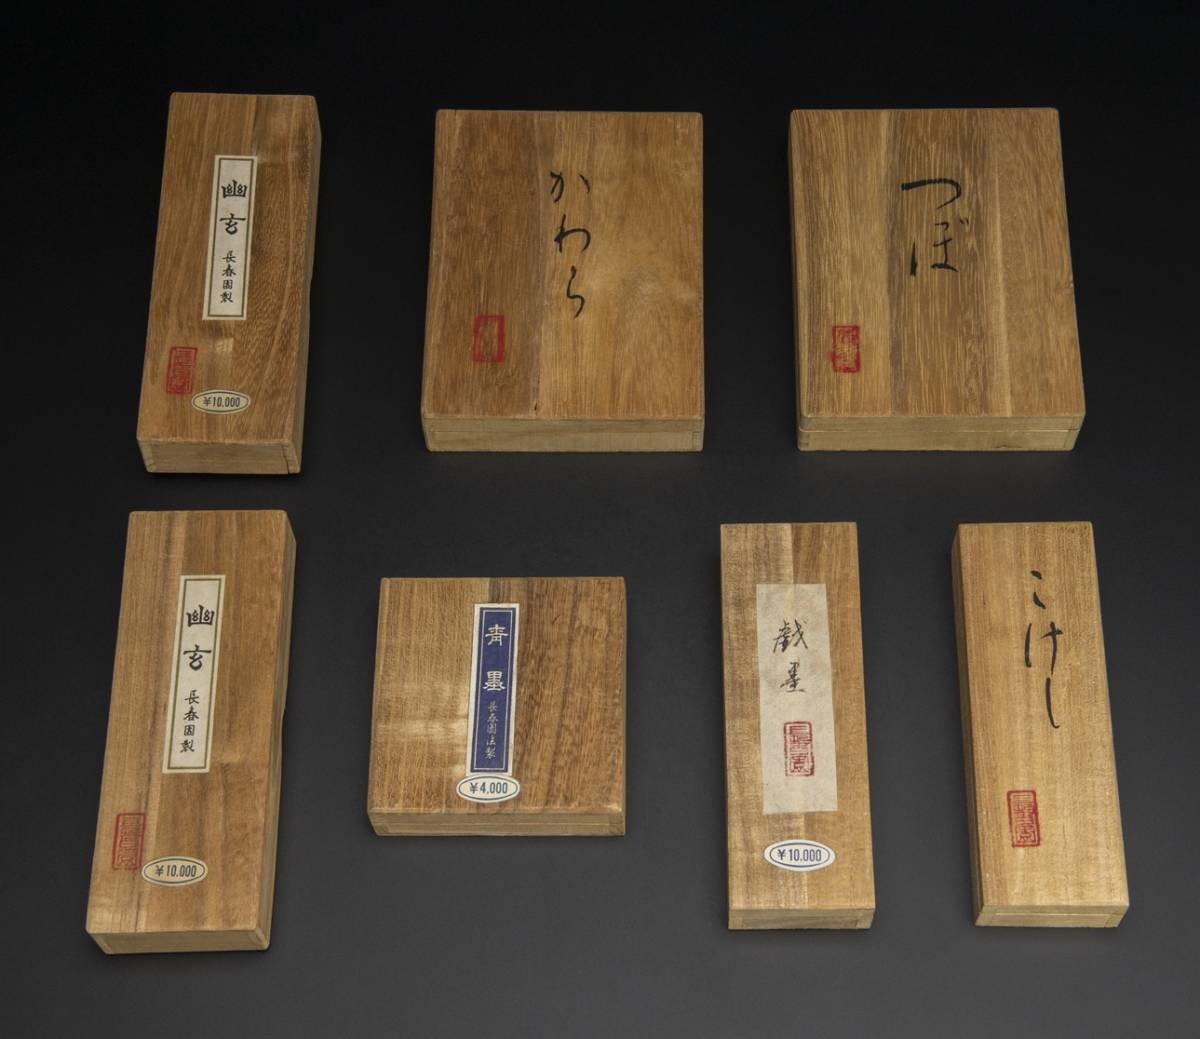 幽玄
長春園製
¥10.000
かわら
つぼ
幽玄
長春園製
¥10.000
青墨
長春園法製
¥4,000
戯墨
¥10.000
こけし